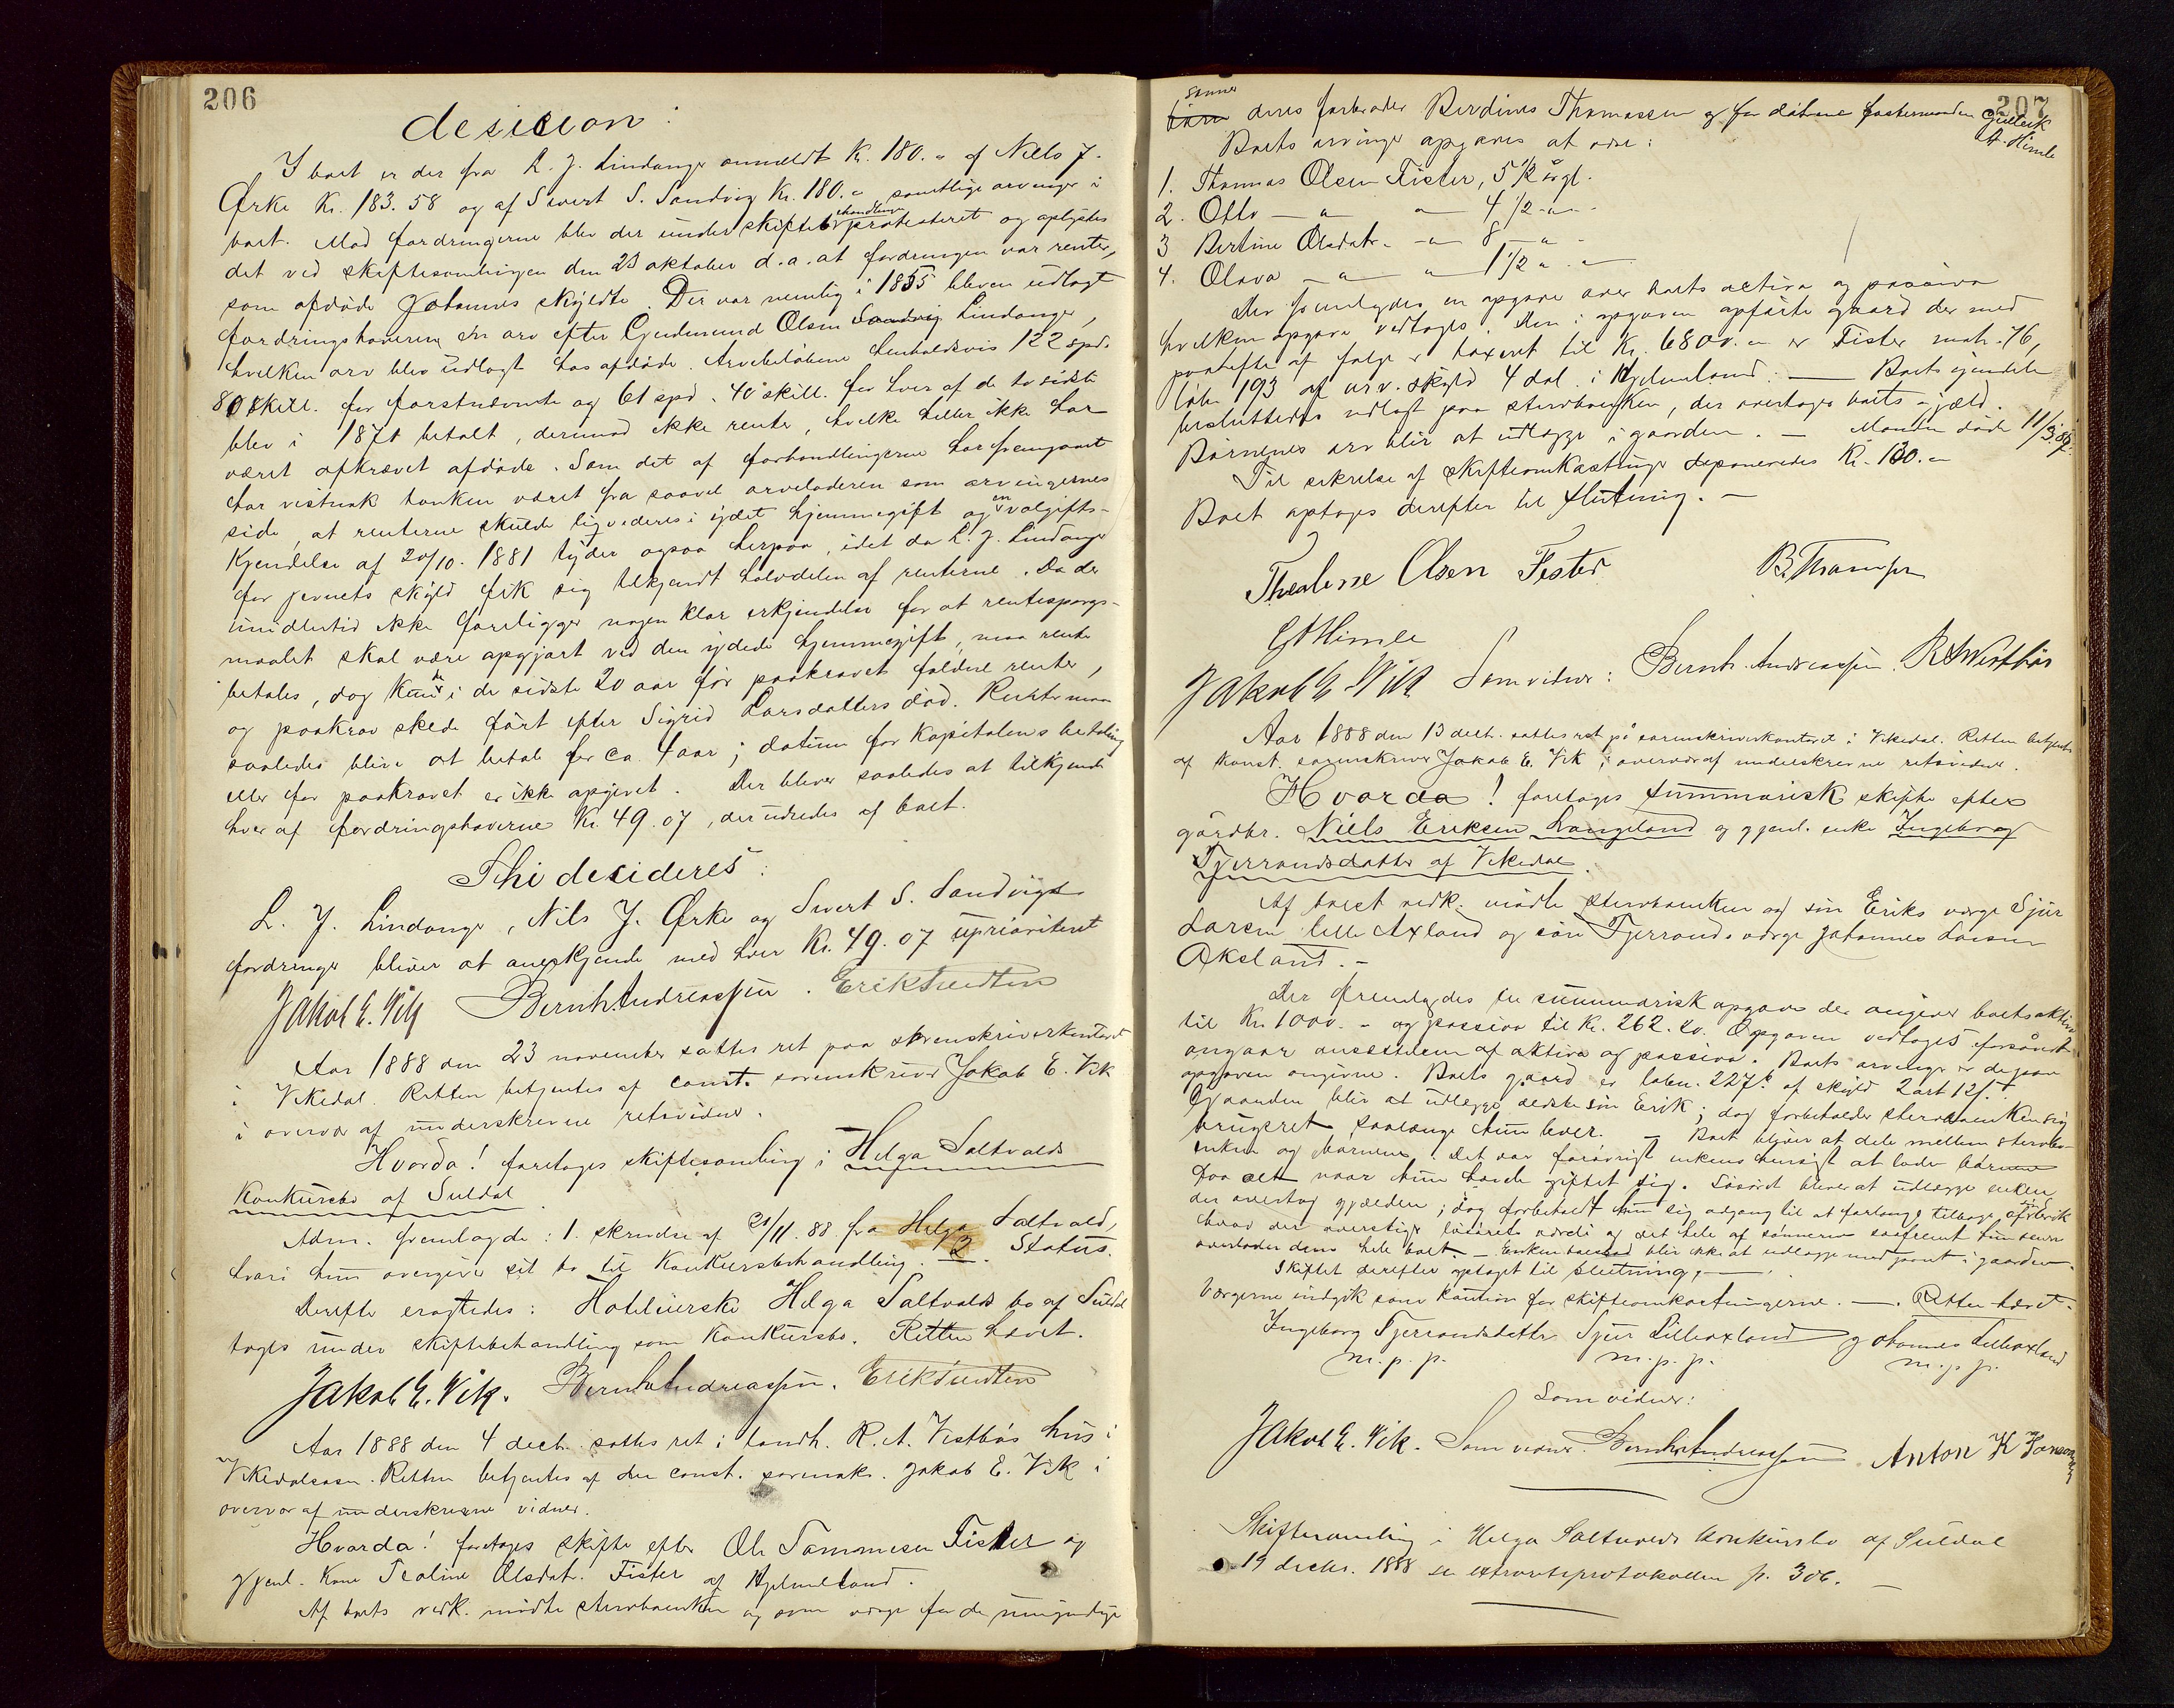 206
desicion:
I boet er der fra L. J. Lindanger anmeldt Kr. 180.„ af Niels J.
Ørke Kr. 183.58 og af Sivert S. Sandvig Kr. 180.„ samtlige arvinger i
boet. Mod fordringerne blev der under skiftebehandlingen protesteret og oplystes
det ved skiftesamlingen den 23 oktober d.a. at fordringen var renter,
som afdøde Johannes skyldte. Der var nemlig i 1855 bleven udlagt
fordringshaverne en arv efter Gudmund Olsen Sandvig Lindanger,
hvilken arv blev udlagt hos afdøde. Arvebeløbene henholdsvis 122 spd.
80 skill. for førstnævnte og 61 spd. 40 skill. for hver af de to sidste
blev i 1871 betalt, derimod ikke renter, hvilke heller ikke har
været afkrævet afdøde. Som det af forhandlingerne har fremgaaet
har vistnok tanken været fra saavel arveladeren som arvingernes
side, at renterne skulde ligvideres i ydet hjemmegift og en voldgifts-
Kjendelse af 20/10. 1881 tyder ogsaa herpaa, idet da L. J. Lindanger
for jevnets skyld fik sig tilkjendt halvdelen af renterne. Da der
imidlertid ikke foreligger nogen klar erkjendelse for at rentespørgs-
maalet skal være opgjort ved den ydede hjemmegift, maa rente
betales, dog kun de i de sidste 20 aar før paakravet faldne renter,
og paakrav skede først efter Sigrid Larsdatters død. Rente maa
saaledes blive at betale for ca. 4 aar; datum for kapitalens betaling
eller for paakravet er ikke opgivet. Der bliver saaledes at tilkjende
hver af fordringshaverne Kr. 49.07, der udredes af boet.
Thi desideres:
L. J. Lindanger, Nils J. Ørke og Sivert S. Sandvigs
fordringer bliver at anerkjende med hver Kr. 49.07 uprioriteret
Jakob E. Vik Bernh. Andreassen. Erik
Aar 1888 den 23 november sattes ret paa sorenskriverkontoret
i Vikedal. Retten betjentes af const. sorenskriver Jakob E. Vik
i overvær af underskrevne retsvidner.
Hvorda! foretoges skiftesamling i Helga Saltvolds
Konkursbo af Suldal.
Adm. fremlagde: 1. skrivelse af 21/11. 88 fra Helga Saltvold,
hvori hun overgiver sit bo til Konkursbehandling. —. 2. Status.
Derefter eragtedes: Hotelvertske Helga Saltvolds bo af Suldal
tages under skiftebehandling som Konkursbo. Retten hævet.
Jakob E. Vik. Bernh. Andreassen. Erik
Aar 1888 den 4 decb. sattes ret i landh. R. A. Vestbøs hus i
Vikedalsosen. Retten betjentes af den const. sorenskr. Jakob E. Vik i
overvær af underskrevne vidner.
Hvorda! foretoges skifte efter Ole Tommesen Fister og
gjenl. Kone Tealine Olsdatr. Fister af Hjelmeland.
Af boets vedk. mødte stervboenken og som verge for de umyndige
207
sønner
børn deres farbroder Berdines Thomassen og for døtrene fostermanden Gulleik
A. Himle
Boets arvinger opgaves at være:
1. Thomas Olsen Fister, 5 1/2 årgl.
2. Otto — „ — 4 1/2 „
3 Bertine Olsdatr. — „ 8 — „ -
4. Olava — „ — „ 1 1/2 „ -
Der fremlagdes en opgave over boets activa og passiva
hvilken opgave vedtoges. Den i opgaven opførte gaard der med
paahefte af folge er taxeret til Kr. 6800.„ er Fister matr. 76,
løbn 193 af urv. skyld 4 dal. i Hjelmeland. — Boets ejendele
besluttedes udlagt paa stervboenken, der overtager boets gjæld.
Børnenes arv blir at udlægge i gaarden. — Manden døde 11/3 88.
Til sikrelse af skifteomkostninger deponeredes Kr. 130.„
Boet optoges derefter til slutning. —
Thealene Olsen Fister B. Thomsen
G A Himle
Jakob E Vik Som vidner: Bernh. Andreassen. R A Vestbøs
Aar 1888 den 13 decb. sattes ret på sorenskriverkontoret i Vikedal. Retten betjentes
af konst. sorenskriver Jakob E. Vik, i overvær af underskrevne retsvidner.
Hvorda! foretoges summarisk skifte efter
gårdbr. Niels Eriksen Langeland og gjenl. enke Ingeborg
Tjerrandsdatter af Vikedal.
Af boets vedk. mødte stervboenken og søn Eriks værge Sjur
Larsen lille Axland og søn Tjerrands værge Johannes Larsen
Aksland. —
Der fremlagdes en summarisk opgave der angiver boets aktiva
til Kr. 1000. - og passiva til Kr. 262.20. Opgaven vedtoges forsåvidt
angaar ansættelsen af aktiva og passiva. Boets arvinger er de paa
opgaven angivne. Boets gaard er løben. 227 b af skyld 2 ort 12 s.
Gaarden blir at udlægge ældste søn Erik; dog forbeholder stervboenken sig
brugsret saalænge hun lever. — Boet bliver at dele mellem stervbo-
enken og børnene. Det var forøvrigt enkens hensigt at lade børnene
faa alt naar hun havde giftet sig. Løsøret bliver at udlægge enken
der overtog gjælden; dog forbeholdt hun sig adgang til at forlange tilbage af søn Erik
hvad der overstiger løsørets værdi og det hele af sønnerne saafremt hun senere
overlader dem hele boet. — Enkens boeslod blir ikke at udlægge med pant i gaarden.
Skiftet derefter optaget til slutning. —.
Værgerne indgik som kaution for skifteomkostningerne. —. Retten hævet.
Ingeborg Tjerrandsdatter Sjur Lilleaxland Johannes Lilleaxland
m.p.p. m.p.p. m.p.p.
Som vidner:
Jakob E. Vik. Som vidner. Bernh. Andreassen Anton K
Skiftesamling i Helga Saltvolds konkursbo af Suldal
19 decbr. 1888 se extraretsprotokollen p. 306. —